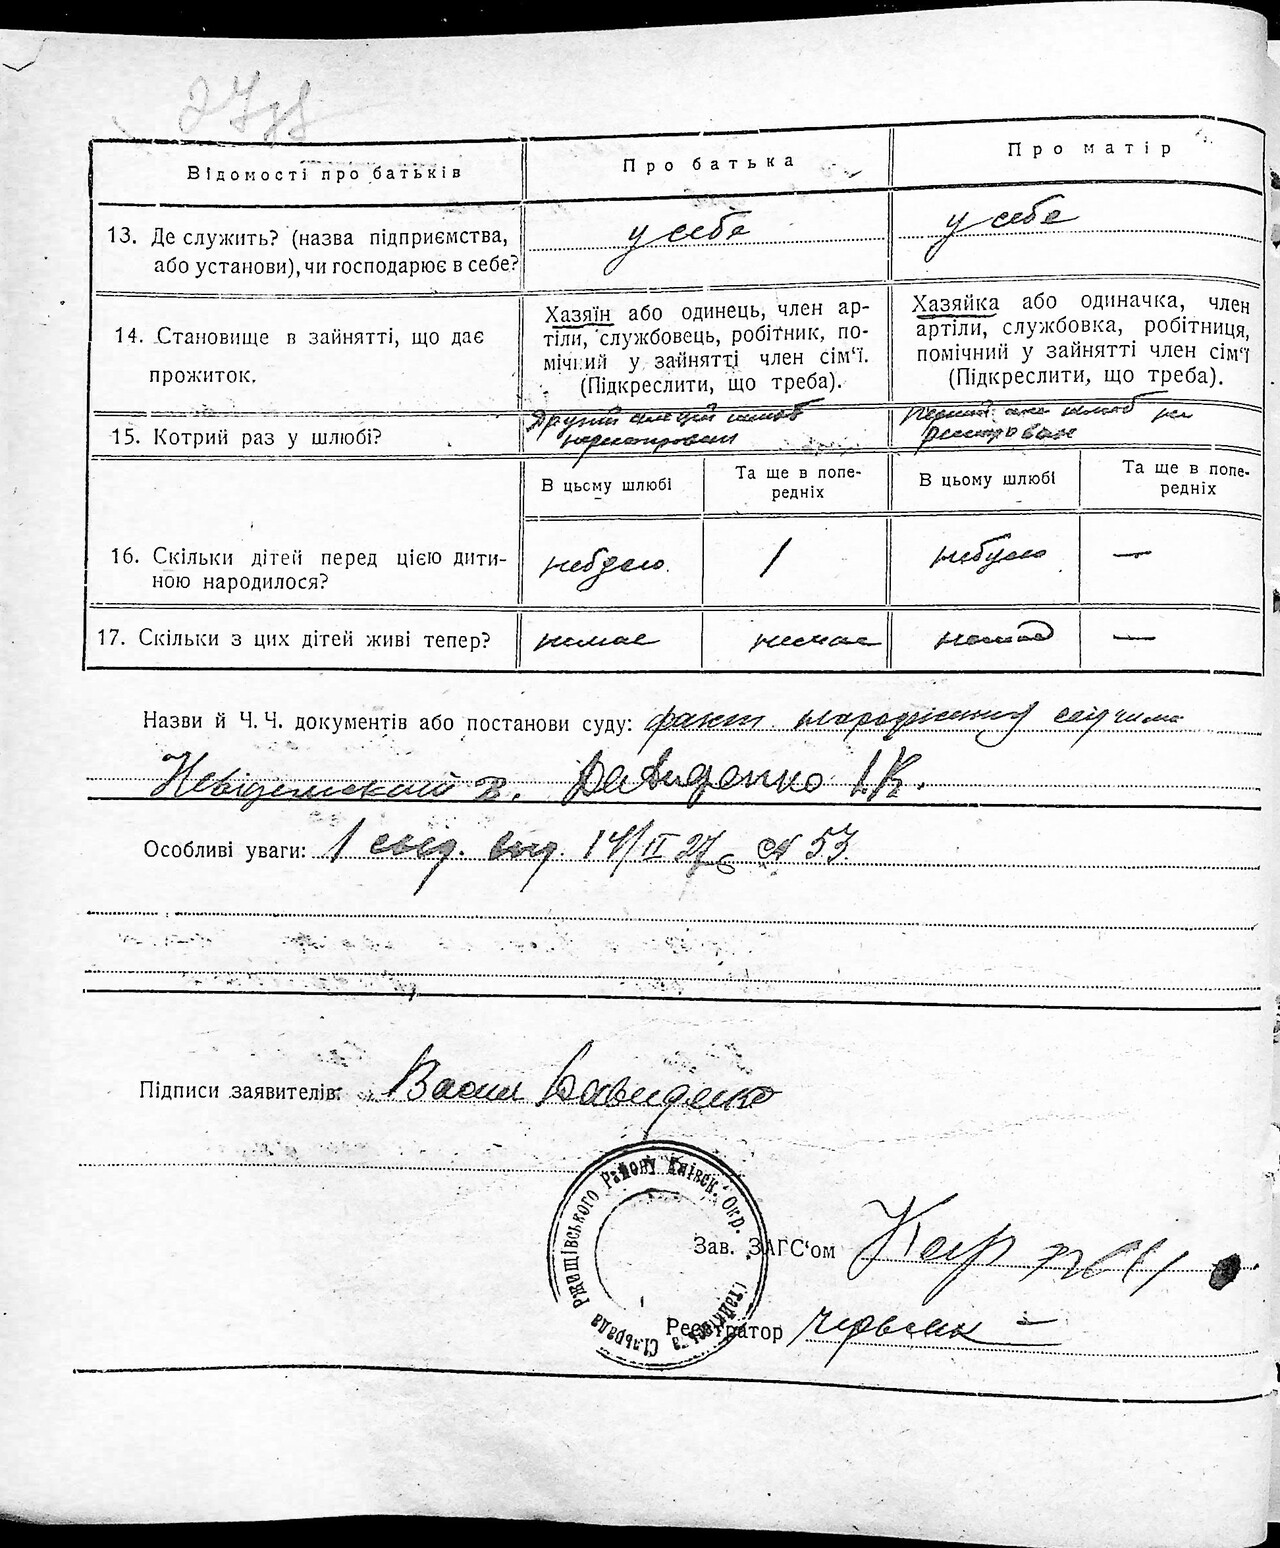 27
Відомості про батьків
Про батька
Про матір
13. Де служить? (назва підприємства,
або установи), чи господарює в себе?
у себе
у себе
14. Становище в зайнятті, що дає
прожиток.
Хазяїн або одинець, член ар-
тіли, службовець, робітник, по-
мічний у зайнятті член сім'ї.
(Підкреслити, що треба).
Хазяйка або одиначка, член
артіли, службовка, робітниця,
помічний у зайнятті член сім'ї
(Підкреслити, що треба).
15. Котрий раз у шлюбі?
Другий шлюб
шлюб не
В цьому шлюбі
Та ще в попе-
редніх
В цьому шлюбі
Та ще в попе-
редніх
16. Скільки дітей перед цією дити-
ною народилося?
небуло
1
небуло
—
17. Скільки з цих дітей живі тепер?
немає
немає
немає
—
Назви й Ч. Ч. документів або постанови суду: факт народження
В. Давиденко І.К.
Особливі уваги: 14/II 27 № 53.
Підписи заявителів: Васил Давиденко
Ржищівського Району Київск. Окр.
Сільрада
Зав. ЗАГС'ом
Реєстратор